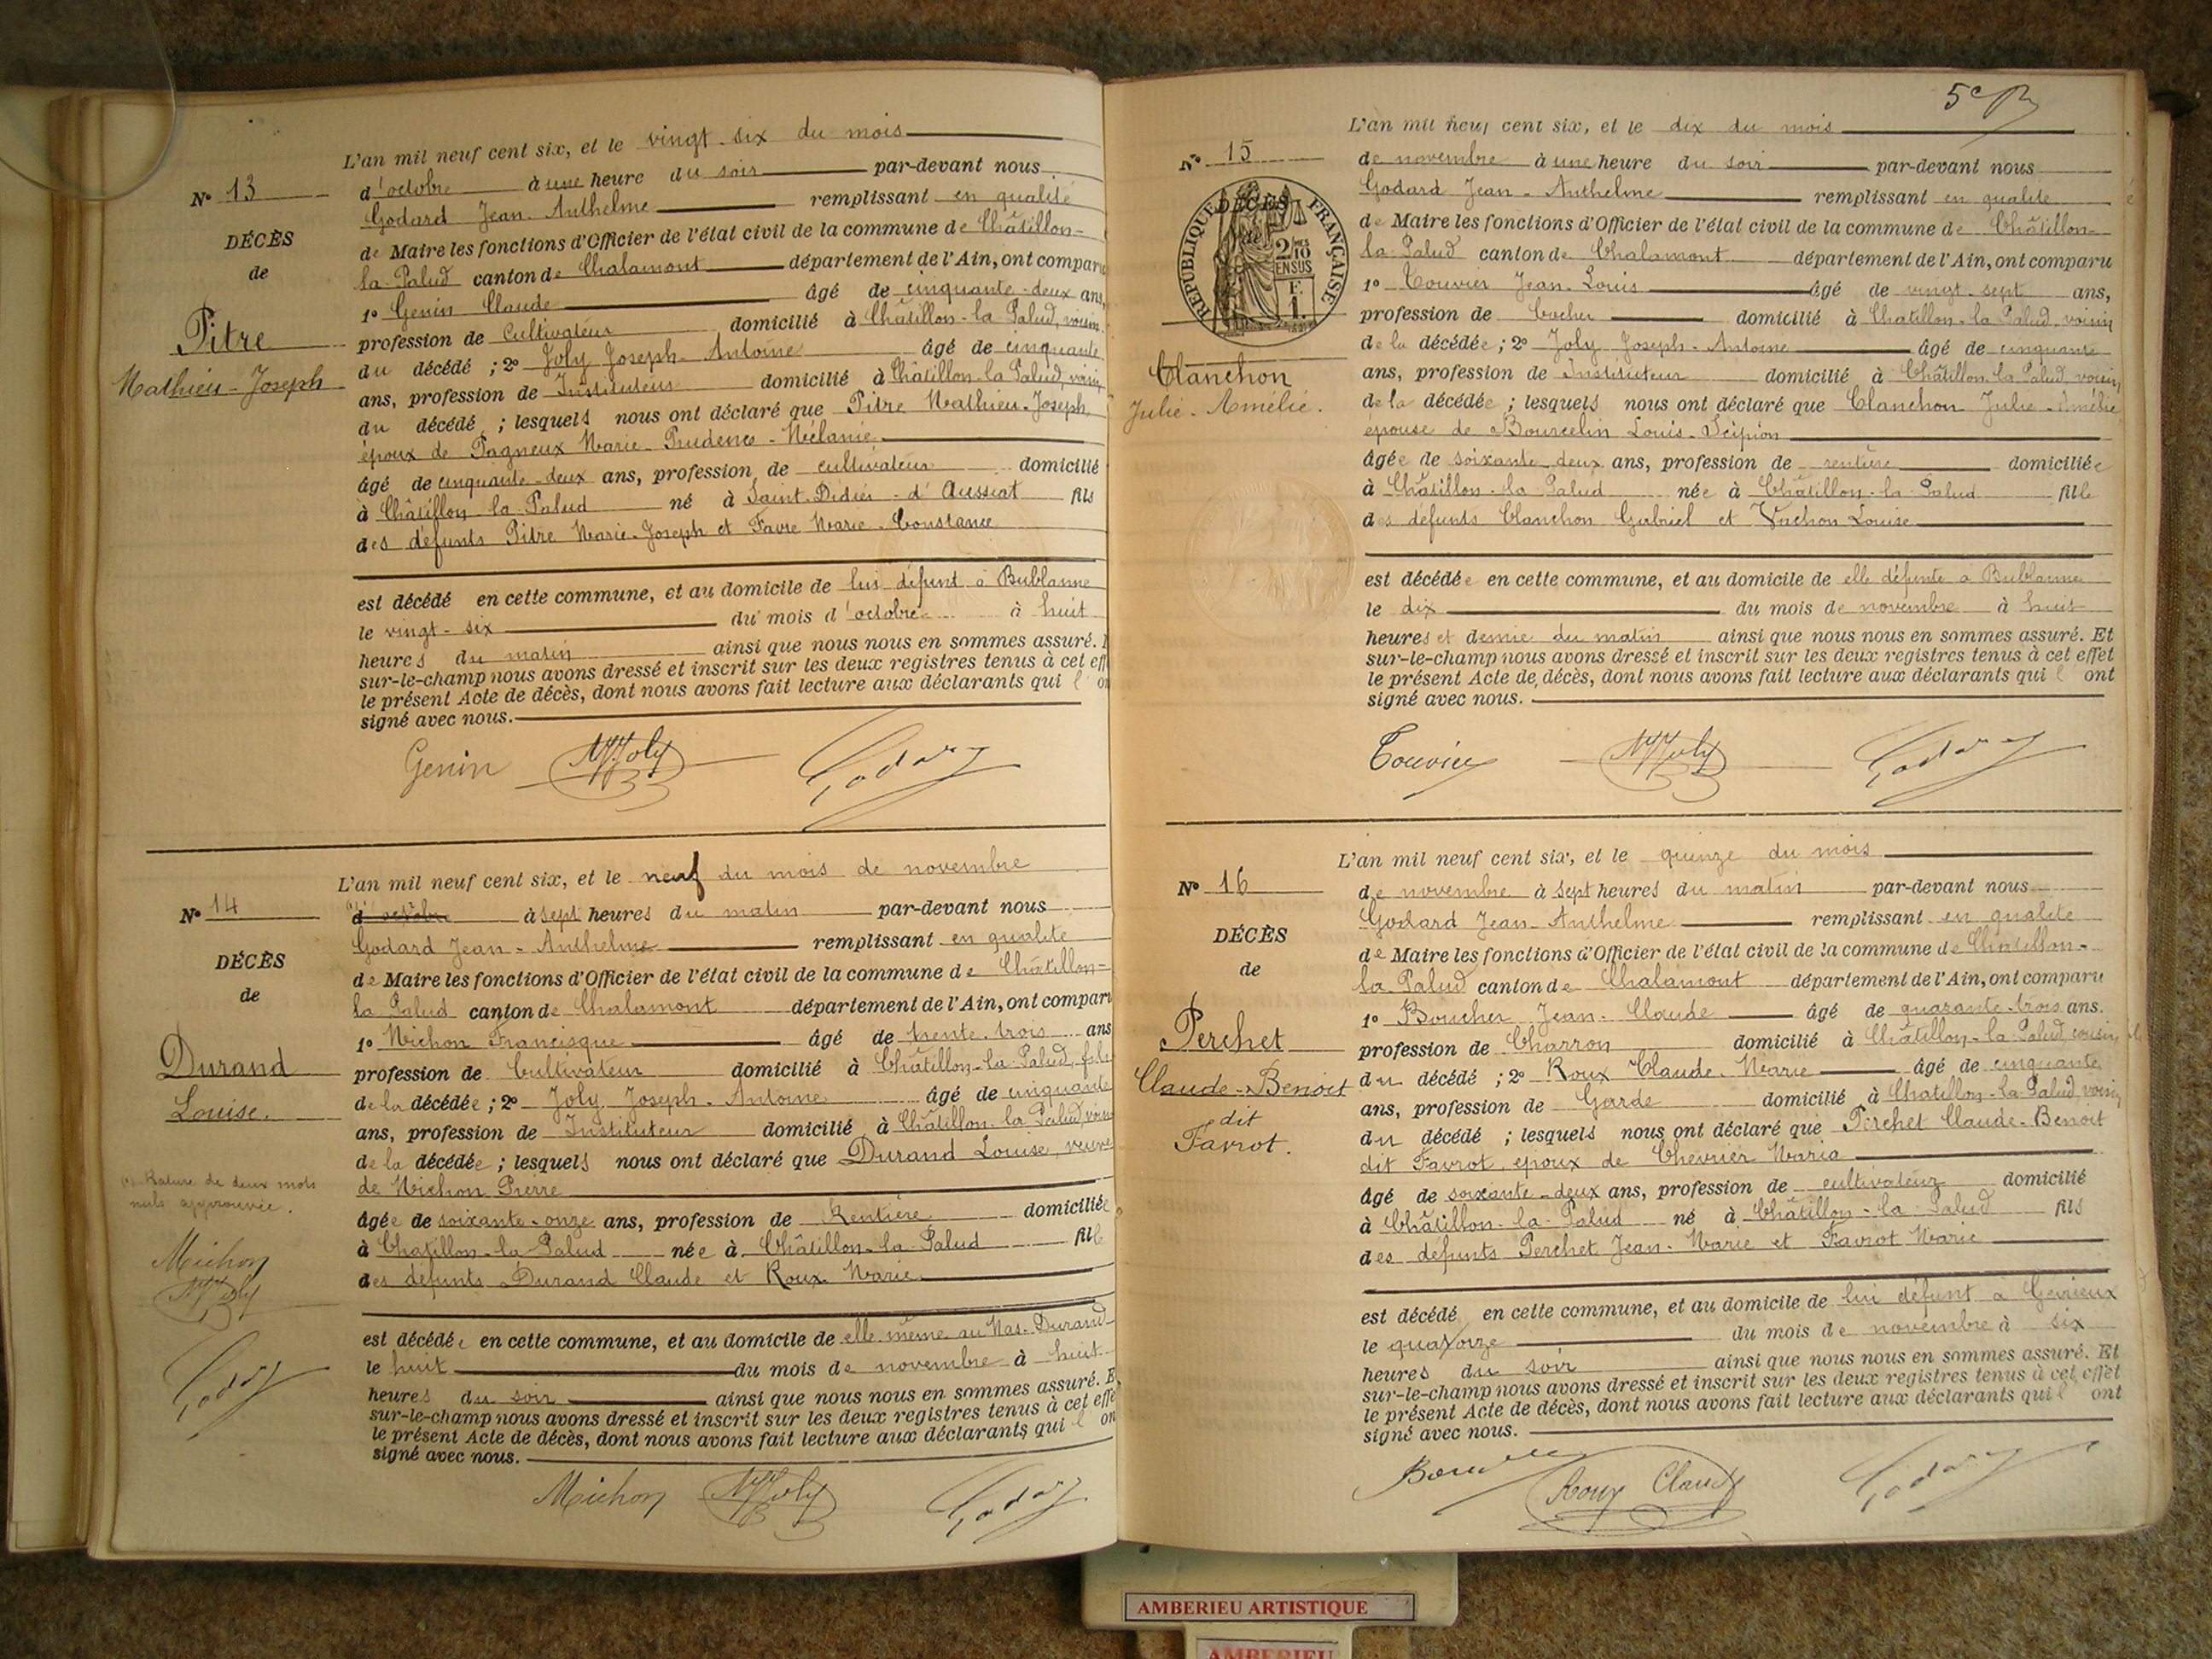 L'an mil neuf cent six, et le vingt-six du mois
N° 13
d'octobre à une heure du soir par-devant nous
Godard Jean-Anthelme remplissant en qualité
DÉCÈS
de Maire les fonctions d'Officier de l'état civil de la commune de Châtillon-
de
la-Palud canton de Chalamont département de l'Ain, ont comparu
1° Genin Claude âgé de cinquante-deux ans,
Pitre
profession de Cultivateur domicilié à Châtillon-la-Palud, voisin
Mathieu-Joseph
du décédé ; 2° Joly Joseph-Antoine âgé de cinquante
ans, profession de Instituteur domicilié à Châtillon-la-Palud, voisin
du décédé ; lesquels nous ont déclaré que Pitre Mathieu-Joseph
époux de Pagneux Marie-Prudence-Mélanie
âgé de cinquante-deux ans, profession de cultivateur domicilié
à Châtillon-la-Palud né à Saint-Didier-d'Aussiat fils
des défunts Pitre Marie-Joseph et Favre Marie-Constance
est décédé en cette commune, et au domicile de lui défunt à Bublanne
le vingt-six du mois d'octobre à huit
heures du matin ainsi que nous nous en sommes assuré.
sur-le-champ nous avons dressé et inscrit sur les deux registres tenus à cet eff
le présent Acte de décès, dont nous avons fait lecture aux déclarants qui l' on
signé avec nous.
Genin Joly Godard
L'an mil neuf cent six, et le neuf du mois de novembre
N° 14
d'octobre à sept heures du matin par-devant nous
Godard Jean-Anthelme remplissant en qualité
DÉCÈS
de Maire les fonctions d'Officier de l'état civil de la commune de Châtillon-
de
la Palud canton de Chalamont département de l'Ain, ont comparu
1° Michon Francisque âgé de trente-trois ans
Durand
profession de Cultivateur domicilié à Châtillon-la-Palud, fils
Louise.
de la décédée ; 2° Joly Joseph-Antoine âgé de cinquante
ans, profession de Instituteur domicilié à Châtillon-la-Palud, voisin
de la décédée ; lesquels nous ont déclaré que Durand Louise, veuve
de Michon Pierre
(1) Rature de deux mots
nuls approuvée.
âgée de soixante-onze ans, profession de Rentière domiciliée
à Chatillon-la-Palud née à Châtillon-la-Palud fille
des défunts Durand Claude et Roux Marie
Michon
Joly
Godard
est décédée en cette commune, et au domicile de elle même au Mas-Durand
le huit du mois de novembre à huit
heures du soir ainsi que nous nous en sommes assuré. E
sur-le-champ nous avons dressé et inscrit sur les deux registres tenus à cet effe
le présent Acte de décès, dont nous avons fait lecture aux déclarants qui l' on
signé avec nous.
Michon Joly Godard
5e
L'an mil neuf cent six, et le dix du mois
N° 15
de novembre à une heure du soir par-devant nous
Godard Jean-Anthelme remplissant en qualité
DÉCÈS
de
RÉPUBLIQUE FRANÇAISE
2/10 EN SUS
F.
1.
de Maire les fonctions d'Officier de l'état civil de la commune de Châtillon-
la-Palud canton de Chalamont département de l'Ain, ont comparu
1° Touvier Jean-Louis âgé de vingt-sept ans,
profession de Cocher domicilié à Chatillon-la-Palud, voisin
de la décédée ; 2° Joly Joseph-Antoine âgé de cinquante
Clanchon
ans, profession de Instituteur domicilié à Châtillon-la-Palud voisin
Julie-Amélie.
de la décédée ; lesquels nous ont déclaré que Clanchon Julie-Amélie
épouse de Bourcelin Louis-Scipion
âgée de soixante-deux ans, profession de rentière domiciliée
à Châtillon-la-Palud née à Châtillon-la-Palud fille
des défunts Clanchon Gabriel et Vachon Louise
est décédée en cette commune, et au domicile de elle défunte à Bublanne
le dix du mois de novembre à huit
heures et demie du matin ainsi que nous nous en sommes assuré. Et
sur-le-champ nous avons dressé et inscrit sur les deux registres tenus à cet effet
le présent Acte de décès, dont nous avons fait lecture aux déclarants qui l' ont
signé avec nous.
Touvier Joly Godard
L'an mil neuf cent six, et le quinze du mois
N° 16
de novembre à sept heures du matin par-devant nous
Godard Jean-Anthelme remplissant en qualité
DÉCÈS
de Maire les fonctions d'Officier de l'état civil de la commune de Châtillon-
de
la Palud canton de Chalamont département de l'Ain, ont comparu
1° Boucher Jean-Claude âgé de quarante-trois ans.
Perchet
profession de Charron domicilié à Châtillon-la-Palud, cousin
Claude-Benoit
du décédé ; 2° Roux Claude-Marie âgé de cinquante
dit
ans, profession de Garde domicilié à Chatillon-la-Palud, voisin
Favrot.
du décédé ; lesquels nous ont déclaré que Perchet Claude-Benoit
dit Favrot, époux de Chevrier Maria
âgé de soixante-deux ans, profession de cultivateur domicilié
à Châtillon-la-Palud né à Châtillon-la-Palud fils
des défunts Perchet Jean-Marie et Favrot Marie
est décédé en cette commune, et au domicile de lui défunt à Gévrieux
le quatorze du mois de novembre à six
heures du soir ainsi que nous nous en sommes assuré. Et
sur-le-champ nous avons dressé et inscrit sur les deux registres tenus à cet effet
le présent Acte de décès, dont nous avons fait lecture aux déclarants qui l' ont
signé avec nous.
Boucher Roux Claude Godard
AMBERIEU ARTISTIQUE
AMBERIEU